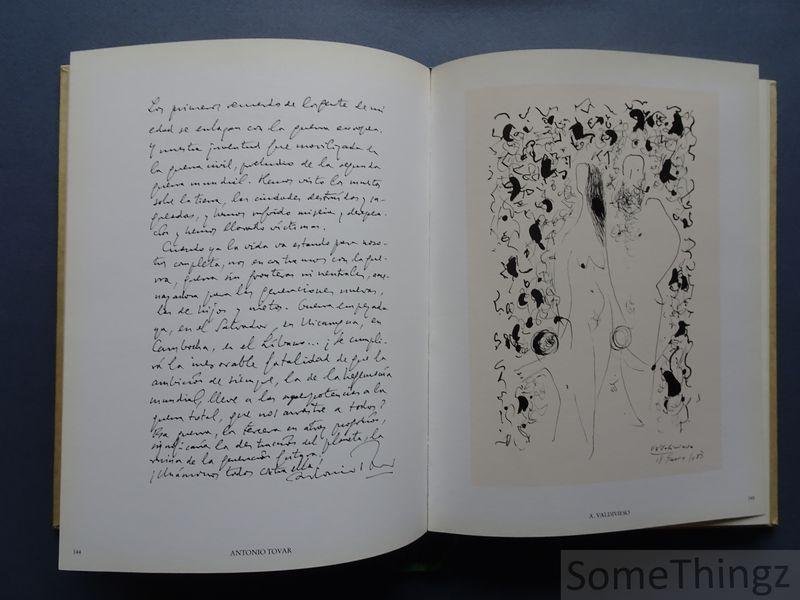 Los primeros recuerdos de la gente de mi
edad se enlazan con la guerra europea.
Y nuestra juventud fue movilizada en
la guerra civil, preludio de la segunda
guerra mundial. Hemos visto los muertos
sobre la tierra, las ciudades destruidas y sa-
queadas, y hemos sufrido miseria y desespera-
ción y hemos llorado víctimas.
Cuando ya la vida va estando para noso-
tros completa, nos encontramos con la gue-
rra, guerra sin fronteras ni neutrales,
para las generaciones nuevas,
las de hijos y nietos. Guerra empezada
ya, en el Salvador, en Nicaragua, en
Camboya, en el Líbano... ¿Se cumpli-
rá la inexorable fatalidad de que la
ambición de siempre, la de la hegemonía
mundial, lleve a las superpotencias a la
guerra total, que nos arrastre a todos?
Esa guerra, la tercera en años propios,
significaría la destrucción del planeta, la
ruina de la generación futura.
¡Unámonos todos contra ella!
Antonio Tovar
144
ANTONIO TOVAR
1983
145
A. VALDIVIESO
SomeThingz